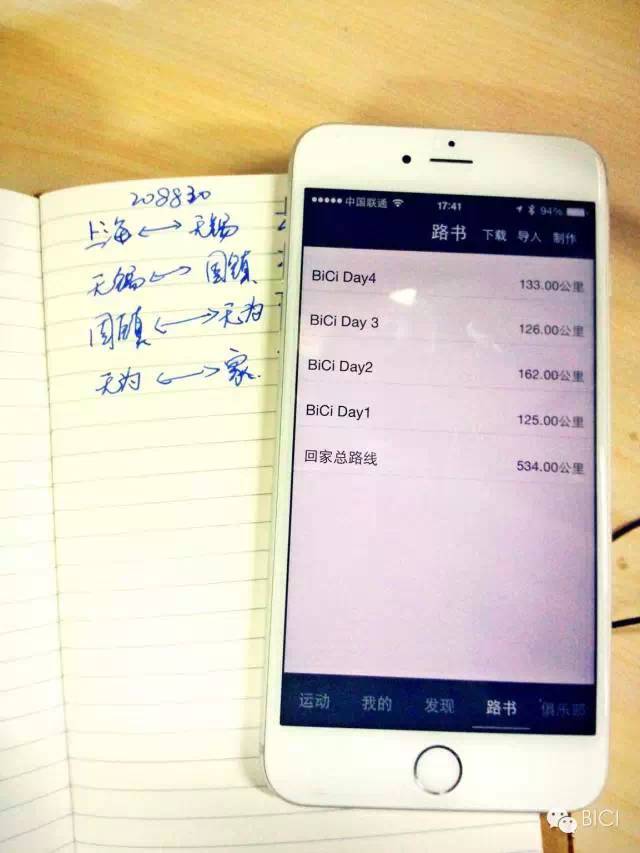 208830
上海 <-> 无锡
无锡 <-> 固镇
固镇 <-> 无为
无为 <-> 家.
中国联通 17:41 94%
路书 下载 导入 制作
BiCi Day4 133.00公里
BiCi Day 3 126.00公里
BiCi Day2 162.00公里
BiCi Day1 125.00公里
回家总路线 534.00公里
运动 我的 发现 路书 俱乐部
BICI